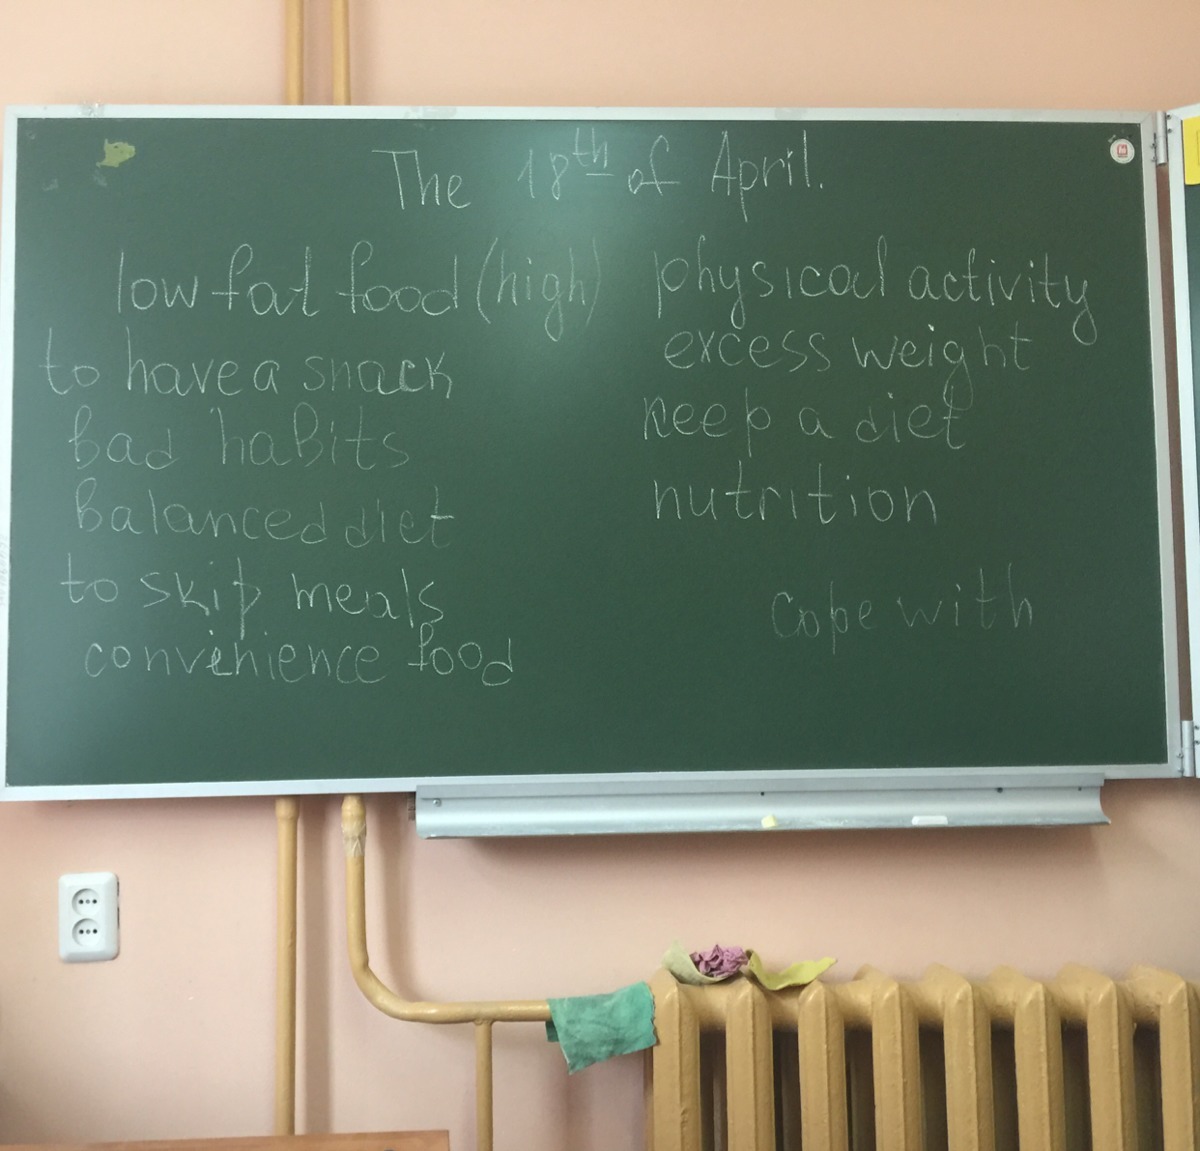 The 18th of April.
low fat food (high)
to have a snack
bad habits
balanced diet
to skip meals
convenience food
physical activity
excess weight
keep a diet
nutrition
cope with